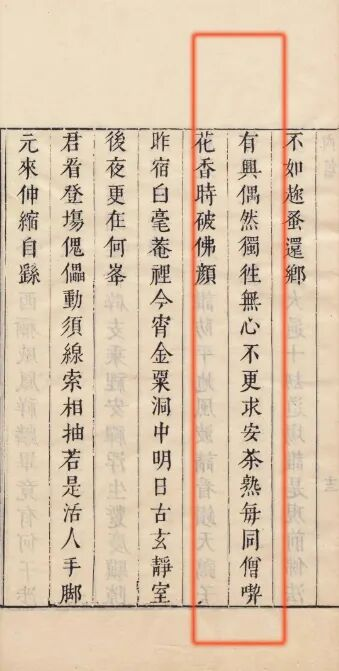 不如趂蚤還鄉
有興偶然獨徃無心不更求安茶熟每同僧喫
花香時破佛顔
昨宿白毫菴裡今宵金粟洞中明日古玄靜室
後夜更在何峯
君看登塲傀儡動須線索相抽若是活人手脚
元來伸縮自繇